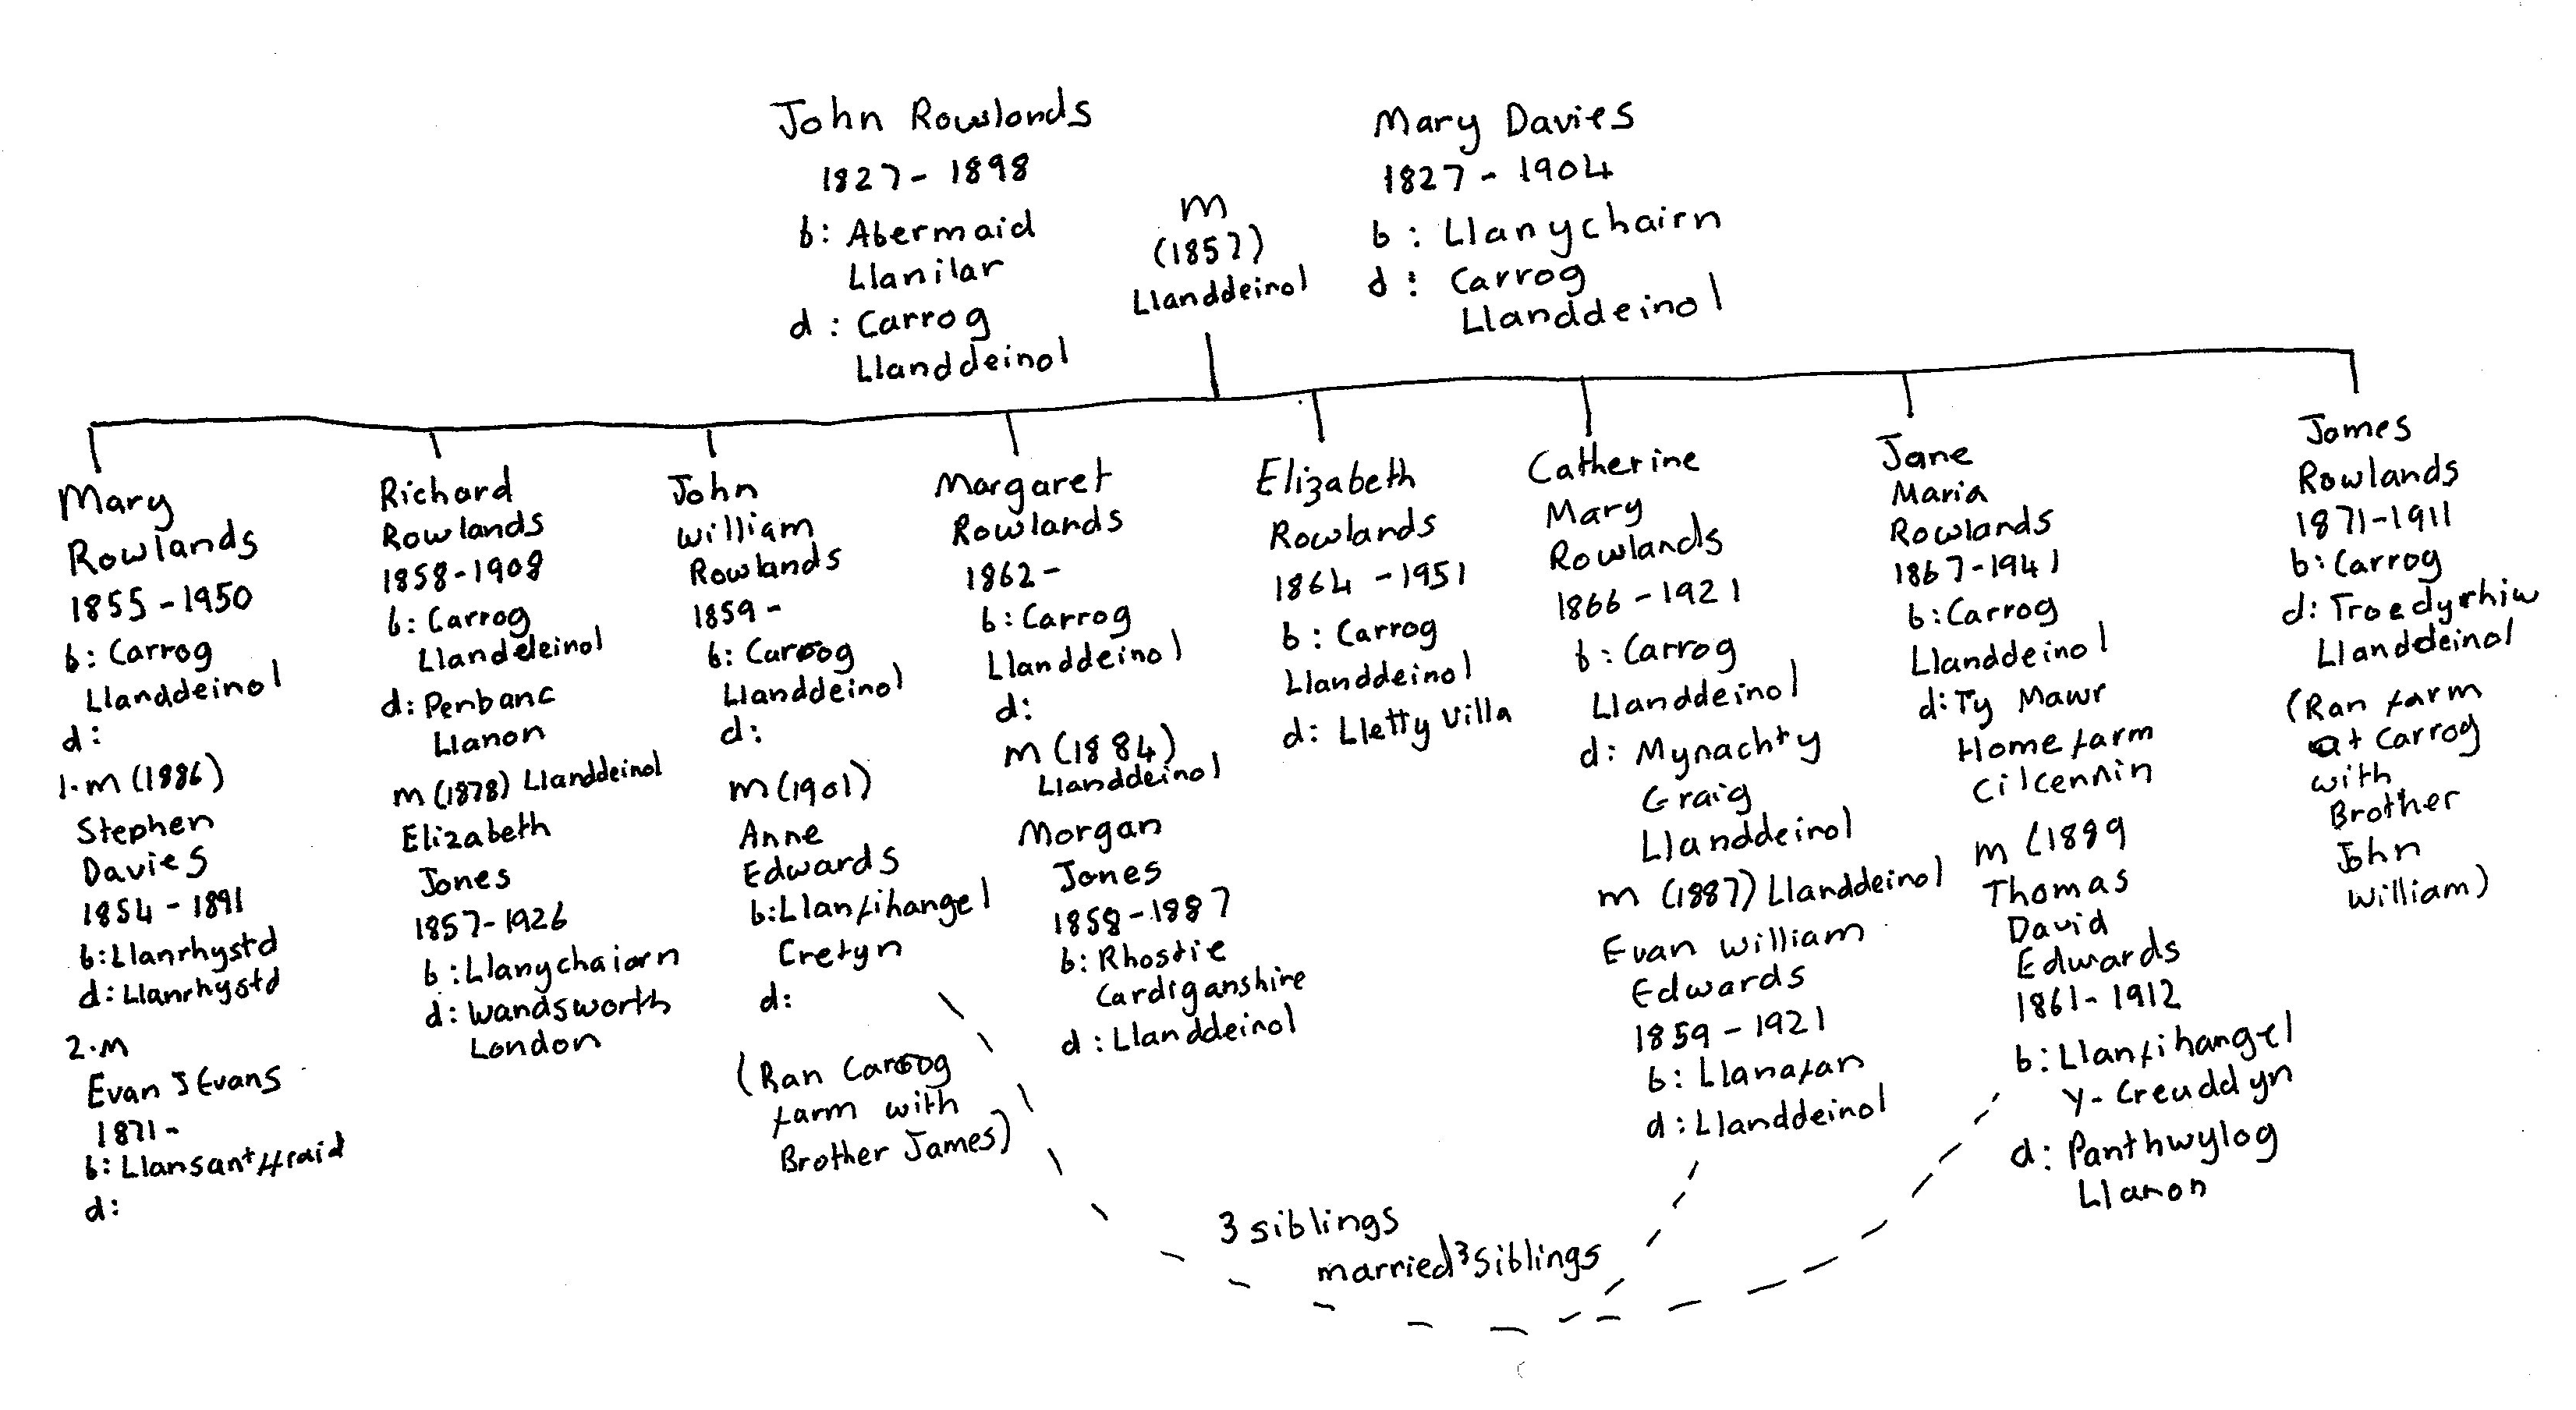 John Rowlands
1827 - 1898
b: Abermaid
Llanilar
d: Carrog
Llanddeinol
m
(1857)
Llanddeinol
Mary Davies
1827 - 1904
b: Llanychairn
d: Carrog
Llanddeinol
Mary
Rowlands
1855 - 1950
b: Carrog
Llanddeinol
d:
1. m (1886)
Stephen
Davies
1854 - 1891
b: Llanrhystd
d: Llanrhystd
2. m
Evan J Evans
1871 -
b: Llansantffraid
d:
Richard
Rowlands
1858 - 1908
b: Carrog
Llanddeinol
d: Penbanc
Llanon
m (1878) Llanddeinol
Elizabeth
Jones
1857 - 1926
b: Llanychaiarn
d: Wandsworth
London
John
William
Rowlands
1859 -
b: Carrog
Llanddeinol
d:
m (1901)
Anne
Edwards
b: Llanfihangel
Crefyn
d:
(Ran Carrog
farm with
Brother James)
Margaret
Rowlands
1862 -
b: Carrog
Llanddeinol
d:
m (1884)
Llanddeinol
Morgan
Jones
1858 - 1887
b: Rhostie
Cardiganshire
d: Llanddeinol
Elizabeth
Rowlands
1864 - 1951
b: Carrog
Llanddeinol
d: Lletty Villa
Catherine
Mary
Rowlands
1866 - 1921
b: Carrog
Llanddeinol
d: Mynachty
Graig
Llanddeinol
m (1887) Llanddeinol
Evan William
Edwards
1859 - 1921
b: Llanafan
d: Llanddeinol
Jane
Maria
Rowlands
1867 - 1941
b: Carrog
Llanddeinol
d: Ty Mawr
Home farm
Cilcennin
m (1889
Thomas
David
Edwards
1861 - 1912
b: Llanfihangel
Y-Creuddyn
d: Panthwylog
Llanon
James
Rowlands
1871 - 1911
b: Carrog
d: Troedyrhiw
Llanddeinol
(Ran farm
at Carrog
with
Brother
John
William)
3 siblings
married 3 siblings